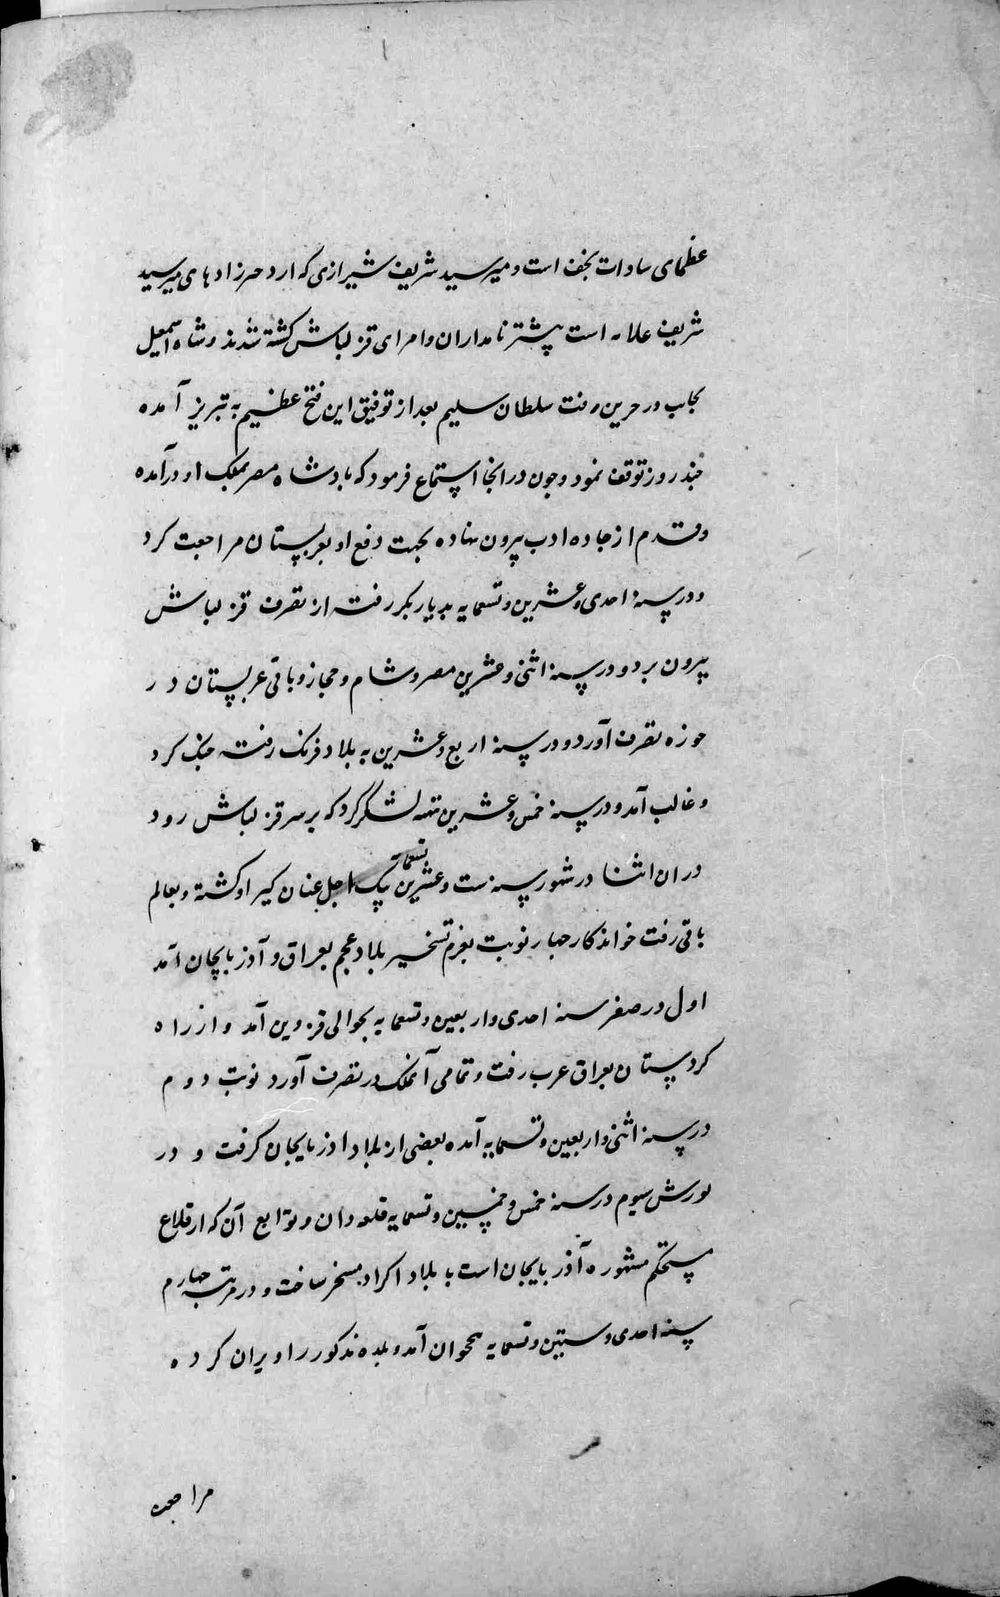 عظمای سادات نجف است و میر سید شریف شیرازی که از دخترزادهای میر سید
شریف علامه است پیشتر نامداران و امرای قزلباش کشته شدند و شاه اسمعیل
بجانب درجزین رفت سلطان سلیم بعد از توفیق این فتح عظیم به تبریز آمده
چند روز توقف نمود و چون در انجا استماع فرمود که پادشاه مصر بملک او درآمده
و قدم از جاده ادب بیرون نهاده بجهت دفع او بعربستان مراجعت کرد
و در سنه احدی و عشرین و تسعمایه بدیار بکر رفته از تصرف قزلباش
بیرون برد و در سنه اثنی و عشرین مصر و شام و حجاز و باقی عربستان در
حوزه تصرف آورد و در سنه اربع و عشرین به بلاد فرنک رفته جنک کرد
و غالب آمد و در سنه خمس و عشرین تهیه لشکر کرد که بر سر قزلباش رود
در ان اثنا در شهور سنه ست و عشرین تسعمایه پیک اجل عنان کیر او کشته و بعالم
باقی رفت خواندکار چهار نوبت بعزم تسخیر بلاد عجم بعراق و آذربایجان آمد
اول در صفر سنه احدی و اربعین و تسعمایه بحوالی قزوین آمد و از راه
کردستان بعراق عرب رفت و تمامی آنملک در تصرف آورد نوبت دوم
در سنه اثنی و اربعین و تسعمایه آمده بعضی از بلاد اذربایجان کرفت و در
یورش سیوم در سنه خمس و خمسین و تسعمایه قلعه وان و توابع آن که از قلاع
مستحکم مشهوره آذربایجان است با بلاد اکراد مسخر ساخت و در مرتبه چهارم
سنه احدی و ستین و تسعمایه نخجوان آمد و بلده مذکور را ویران کرده
مراجعت